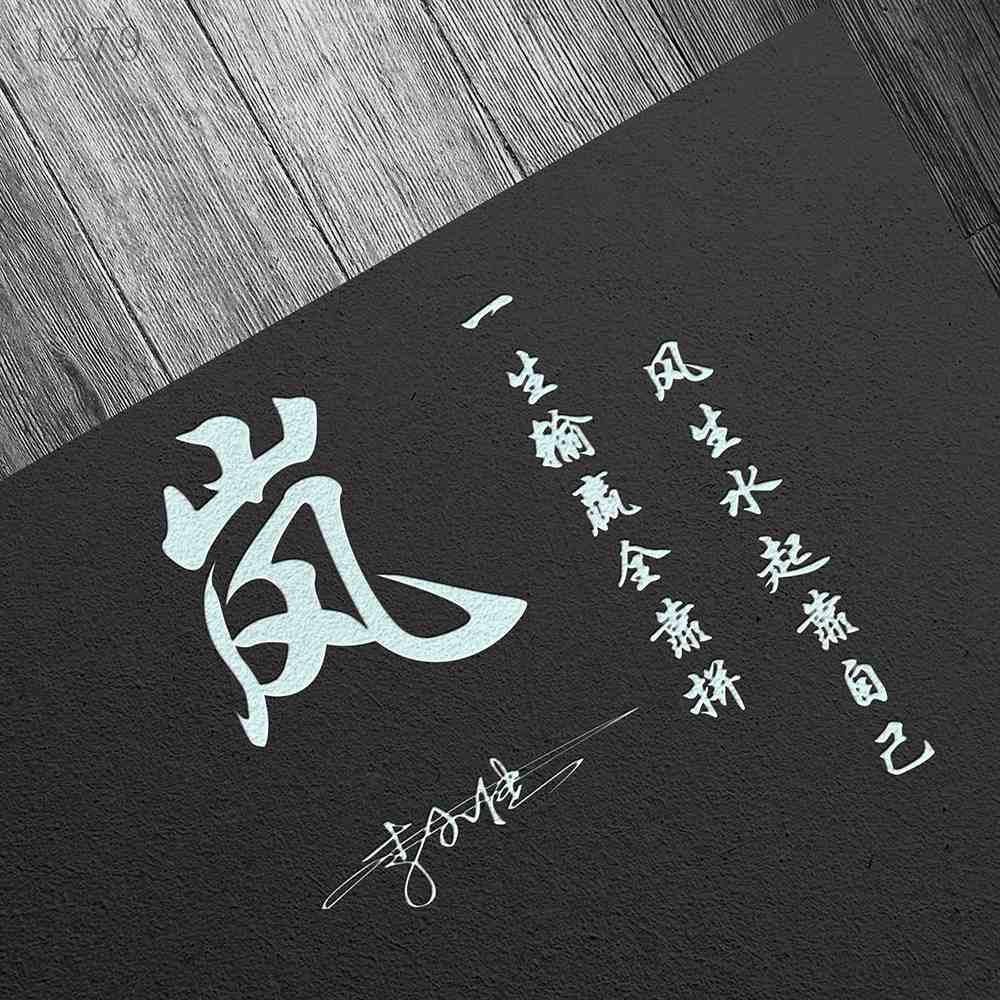 1279
岚
风生水起靠自己
一生输赢全靠拼